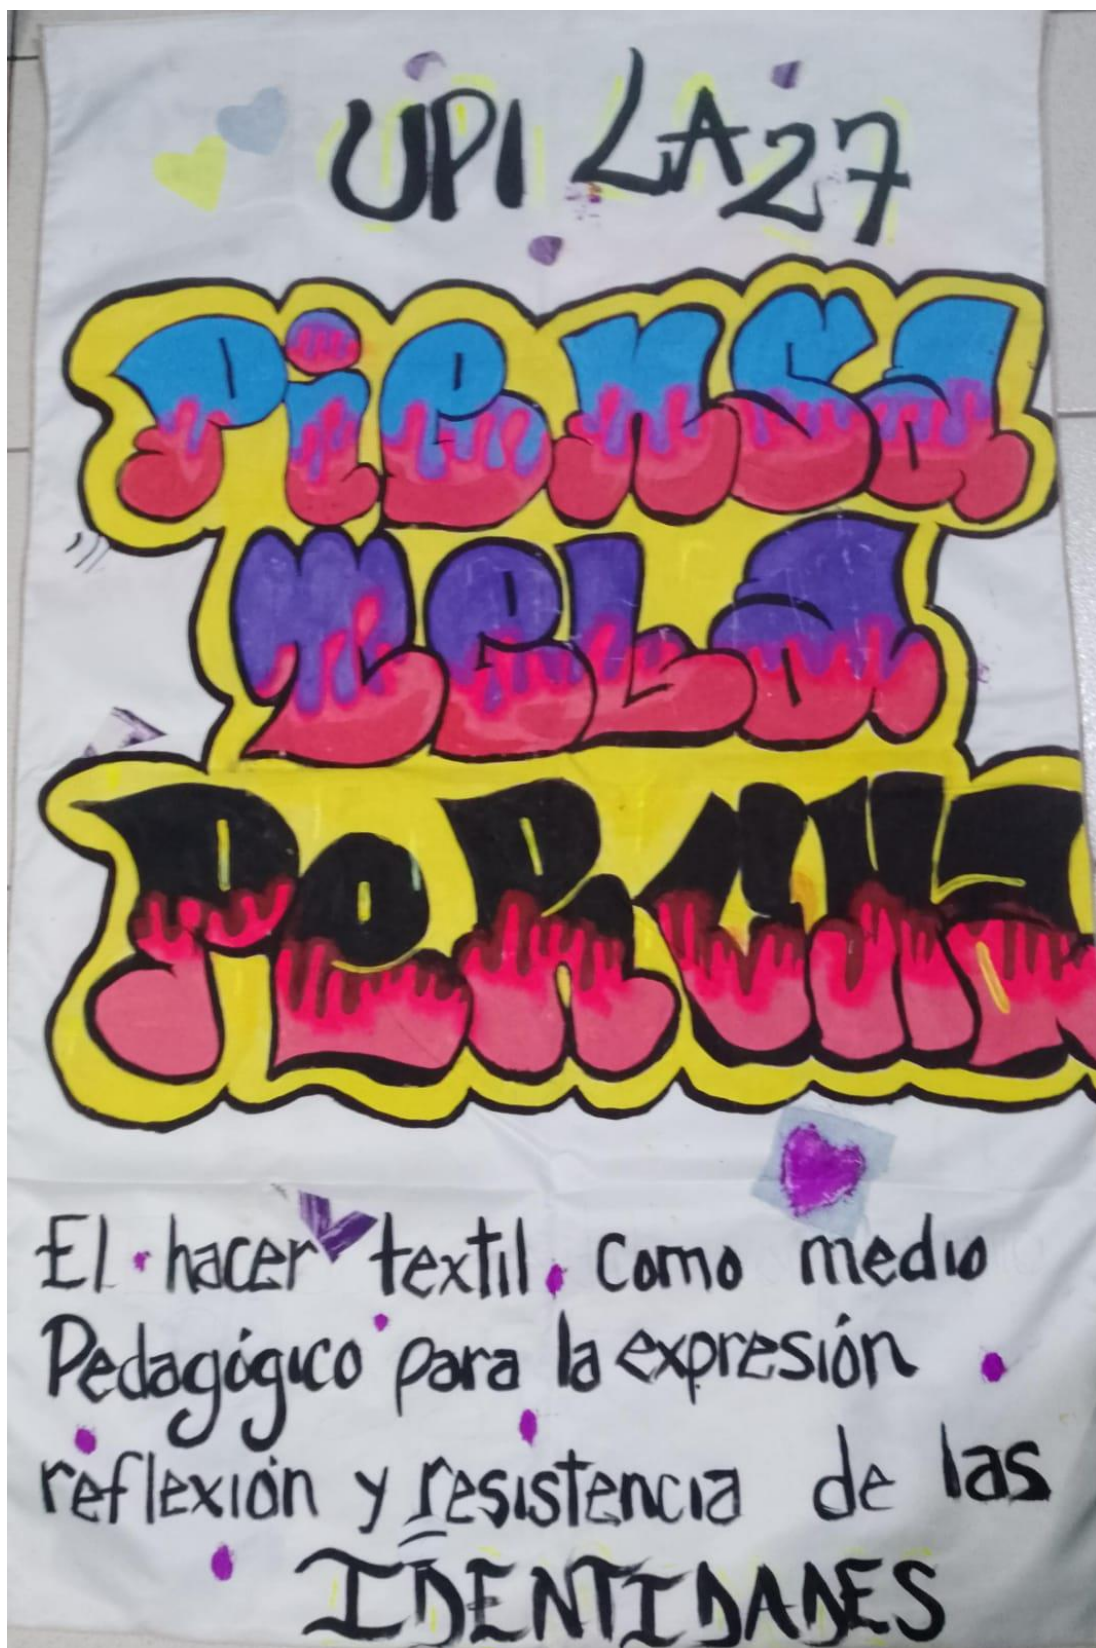 UPI LA 27
Piensa
TeLa
PeRcha
El hacer textil como medio
Pedagógico para la expresión
reflexión y resistencia de las
IDENTIDADES